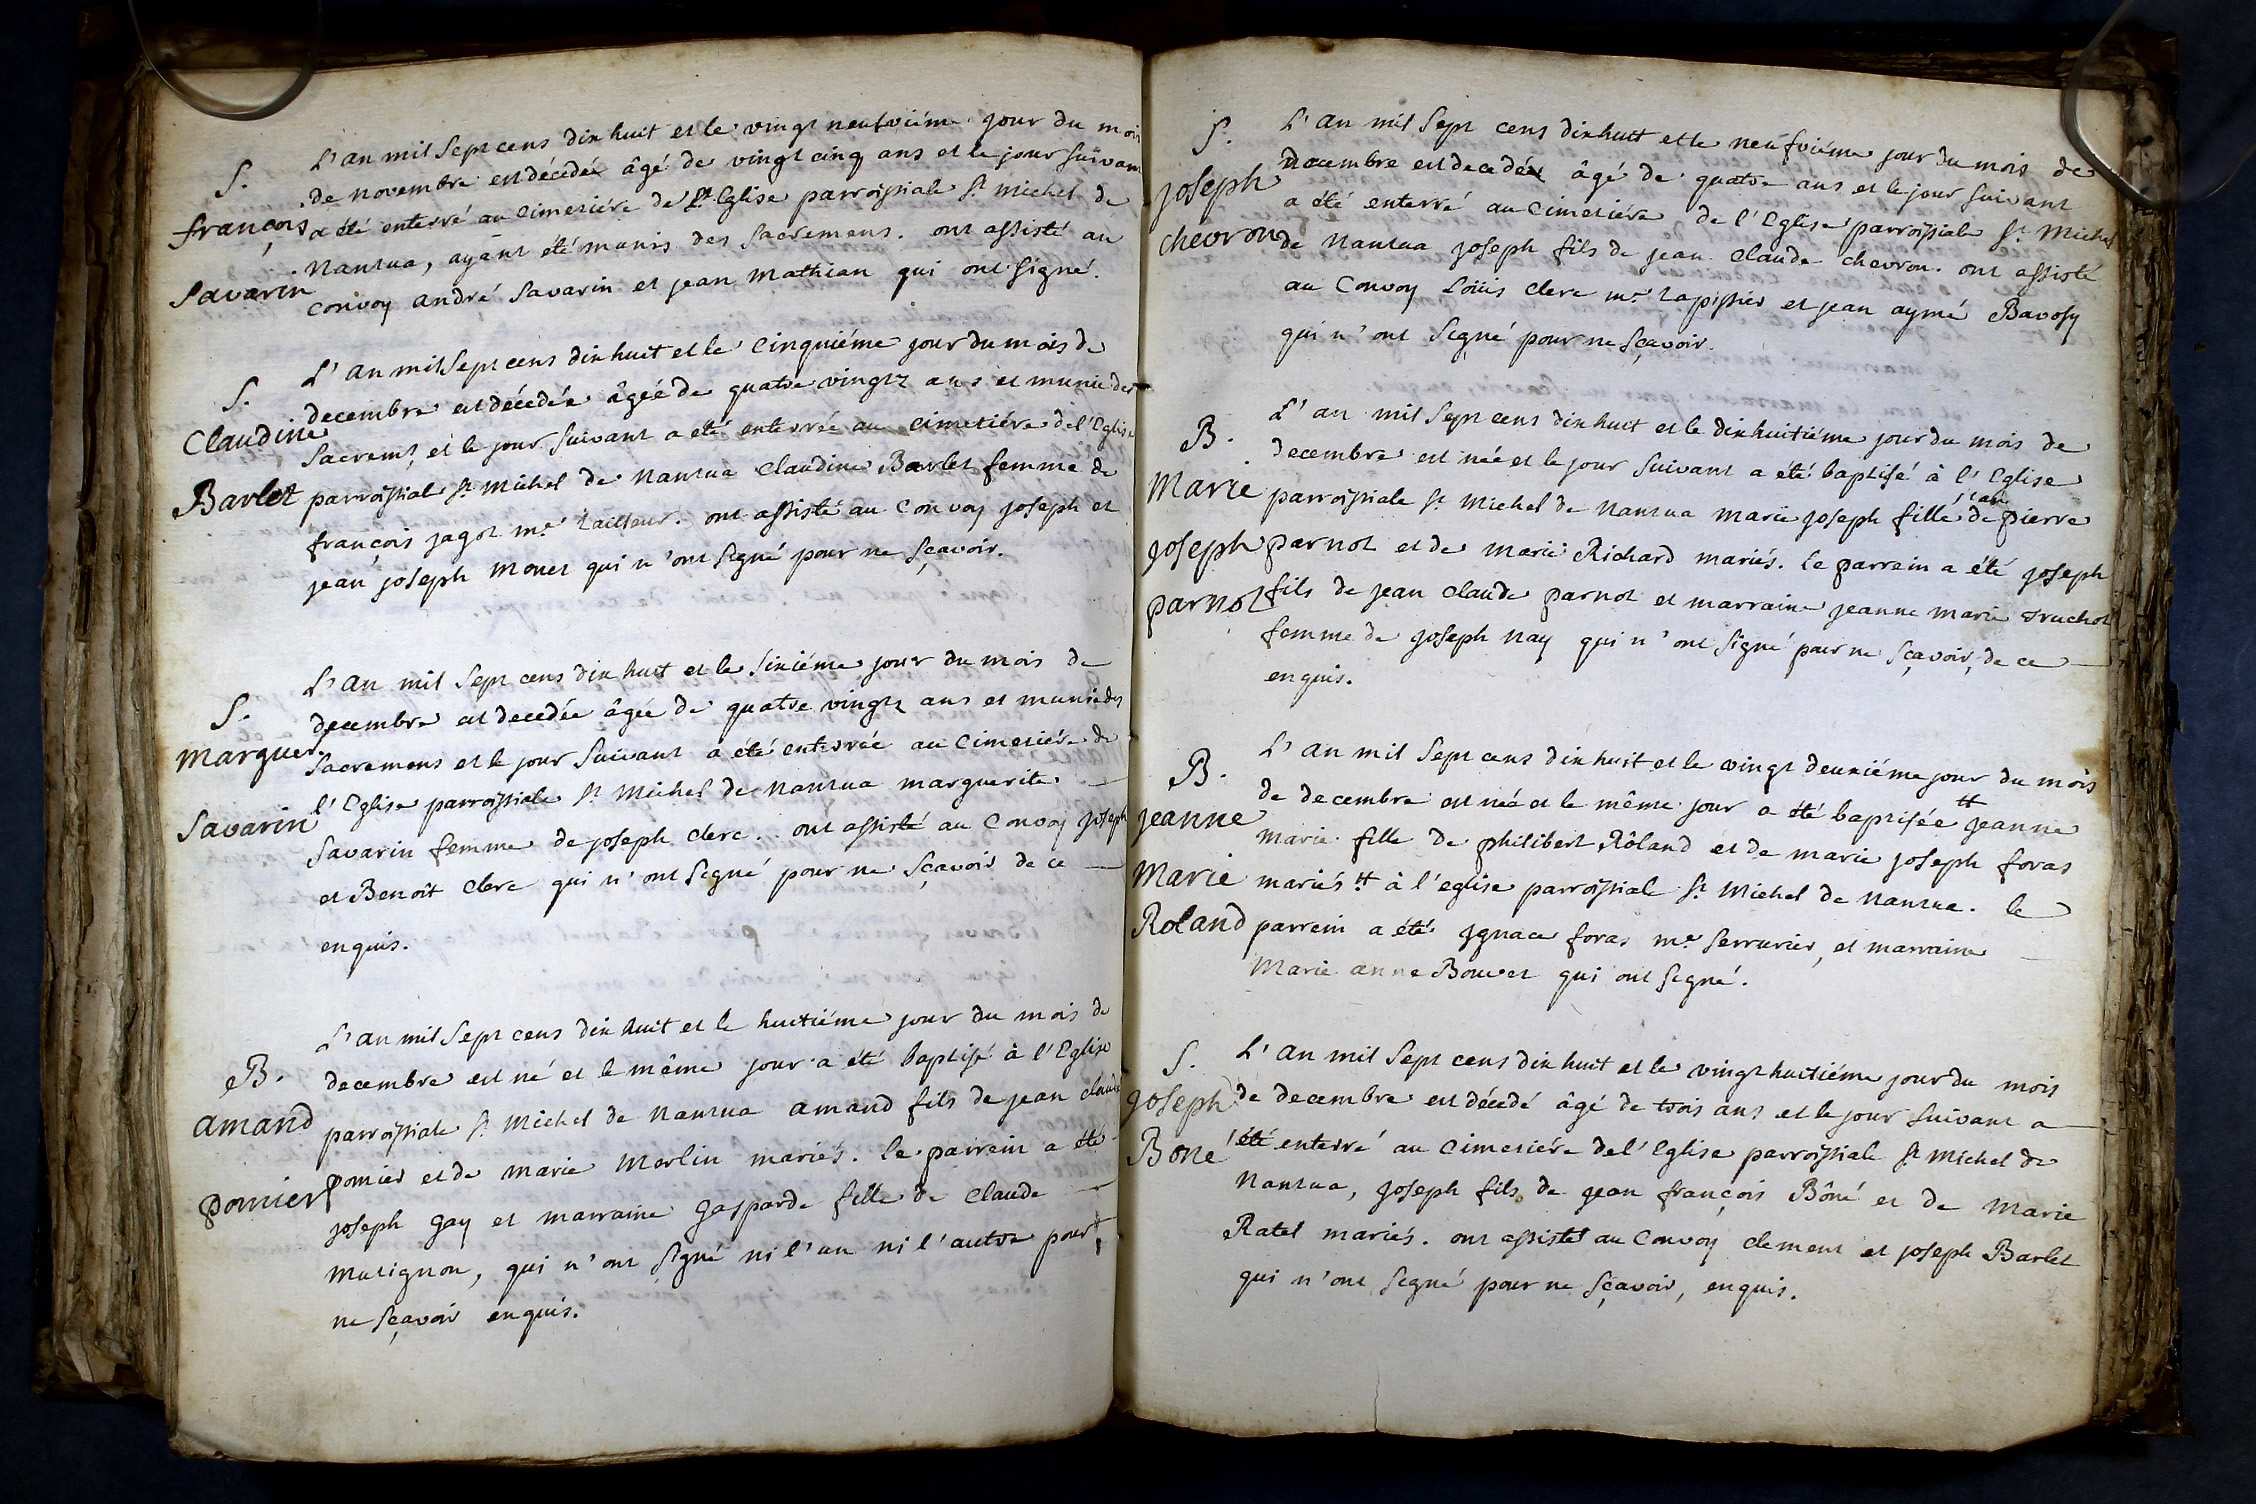 S.
françois
Savarin
L'an mil Sept cens dix huit et le vingt neufviéme jour du mois
de novembre est décédé âgé de vingt cinq ans et le jour suivant
a été enterré au Cimetiére de l'Eglise parroissiale St. Michel de
Nantua, ayant été munis des Sacremens. ont assisté au
convoy andré Savarin et jean Mathian qui ont signé.
S.
Claudine
Barlet
L'an mil Sept cens dix huit et le Cinquiéme jour du mois de
decembre est décédée âgée de quatre vingtz ans et munie des
Sacremts, et le jour suivant a été enterrée au cimetiére de l'Eglise
parroissiale St. Michel de Nantua Claudine Barlet femme de
françois jagot me. tailleur. ont assisté au Convoy joseph et
jean joseph Monet qui n'ont signé pour ne sçavoir.
S.
Marguer.
Savarin
L'an mil Sept cens dix huit et le sixiéme jour du mois de
decembre est decedée âgée de quatre vingtz ans et munie des
Sacremens et le jour suivant a été enterrée au Cimetiére de
l'Eglise parroissiale St. Michel de Nantua marguerite
Savarin femme de joseph clerc. ont assisté au Convoy joseph
et Benoît Clerc qui n'ont signé pour ne sçavoir de ce
enquis.
B.
Amand
Pomier
L'an mil Sept cens dix huit et le huitiéme jour du mois de
decembre est né et le même jour a été baptisé à l'Eglise
parroissiale St. Michel de Nantua amand fils de jean claude
pomier et de marie Merlin mariés. le parrein a été
joseph gay et marraine gasparde fille de Claude
Matignon, qui n'ont signé ni l'un ni l'autre pour
ne sçavoir enquis.
S.
Joseph
Chevron
L'an mil Sept cens dix huit et le neufviéme jour du mois de
decembre est decedé âgé de quatre ans et le jour suivant
a été enterré au Cimetiére de l'Eglise parroissiale St. Michel
de Nantua joseph fils de jean Claude chevron. ont assisté
au Convoy Loüis clerc me. tapissier et jean aymé Bavosy
qui n'ont signé pour ne sçavoir.
B.
Marie
Joseph
parnot
L'an mil Sept cens dix huit et le dixhuitiéme jour du mois de
decembre est née et le jour suivant a été baptisé à l'Eglise
parroissiale St. Michel de Nantua Marie joseph fille de jean pierre
parnot et de marie Richard mariés. le parrein a été joseph
fils de jean Claude parnot et marraine jeanne marie Truchot
femme de joseph Nay qui n'ont signé pour ne sçavoir, de ce
enquis.
B.
jeanne
Marie
Roland
L'an mil Sept cens dix huit et le vingt deuxiéme jour du mois
de decembre est née et le même jour a été baptisée # jeanne
Marie fille de philibert Rôland et de marie joseph foras
mariés # à l'eglise parroissiale St. Michel de Nantua. le
parrein a été Ignace foras me. serrurier, et marraine
Marie anne Bouvet qui ont signé.
S.
Joseph
Boné
L'an mil Sept cens dix huit et le vingt huitiéme jour du mois
de decembre est décédé âgé de trois ans et le jour suivant a
été enterré au Cimetiére de l'Eglise parroissiale St. Michel de
Nantua, joseph fils de jean françois Bôné et de Marie
Ratel mariés. ont assisté au Convoy clement et joseph Barlet
qui n'ont signé pour ne sçavoir, enquis.